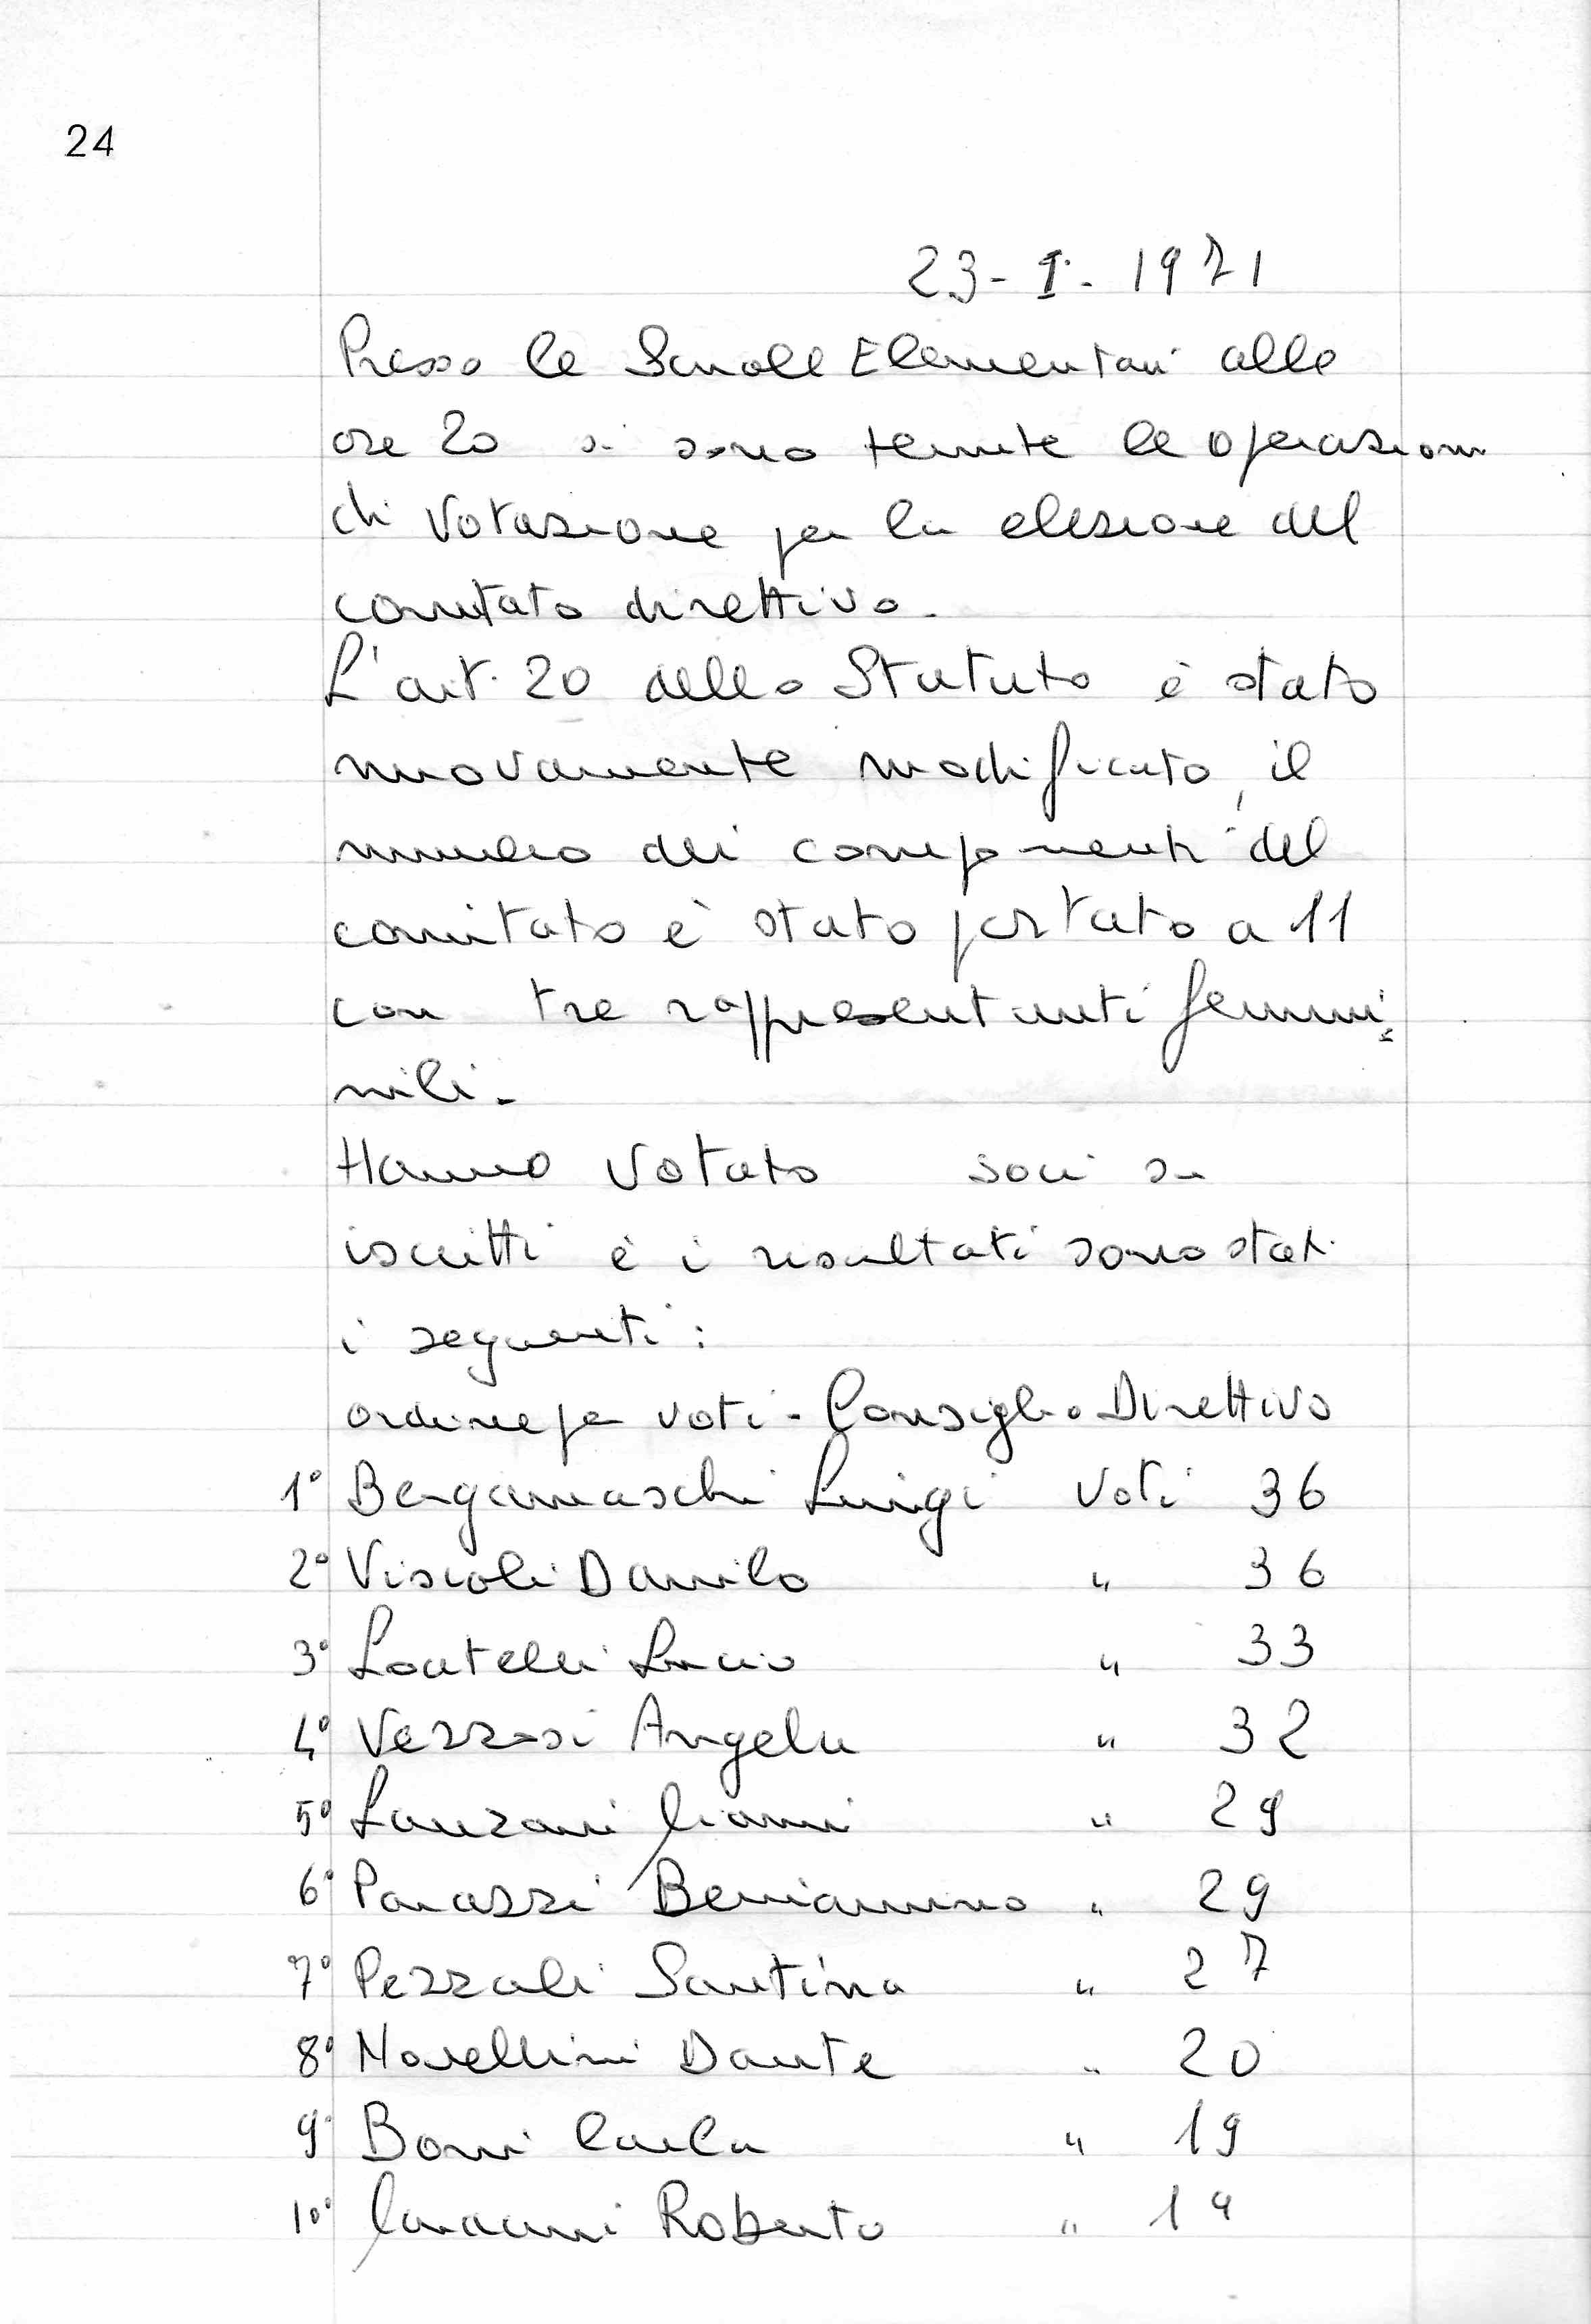 24
23-I-1971
Presso le Scuole Elementari alle
ore 20 si sono tenute le operazioni
di votazione per la elezione del
comitato direttivo.
L'art. 20 dello Statuto è stato
nuovamente modificato, il
numero dei componenti del
comitato è stato portato a 11
con tre rappresentanti femmi=
nili.
Hanno votato soci su
iscritti e i risultati sono stati
i seguenti:
ordine per voti - Consiglio Direttivo
1° Bergamaschi Luigi voti 36
2° Viscoli Danilo " 36
3° Locatelli Lucio " 33
4° Vezzosi Angela " 32
5° Lanzani Gianni " 29
6° Parazzi Beniamino " 29
7° Pezzali Santina " 27
8° Novellini Dante " 20
9° Boni Carla " 19
10° Roberto " 19